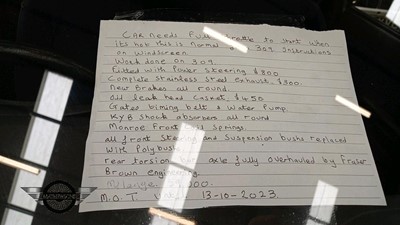 CAR NEEDS Full throttle to start when
its hot this is normal 309 Instructions
on Windscreen.
Work done on 309.
Fitted with Power Steering £800
Complete Stainless Steel exhaust £300
New Brakes all round
Oil leak head Gasket £450
Gates timing belt & Water Pump.
KYB Shock absorbers all round
Monroe Front Springs.
all front Steering and Suspension bushs replaced
With Polybush
rear torsion bar axle fully overhauled by Fraser
Brown engineering.
000.
M.O.T. 13-10-2023.